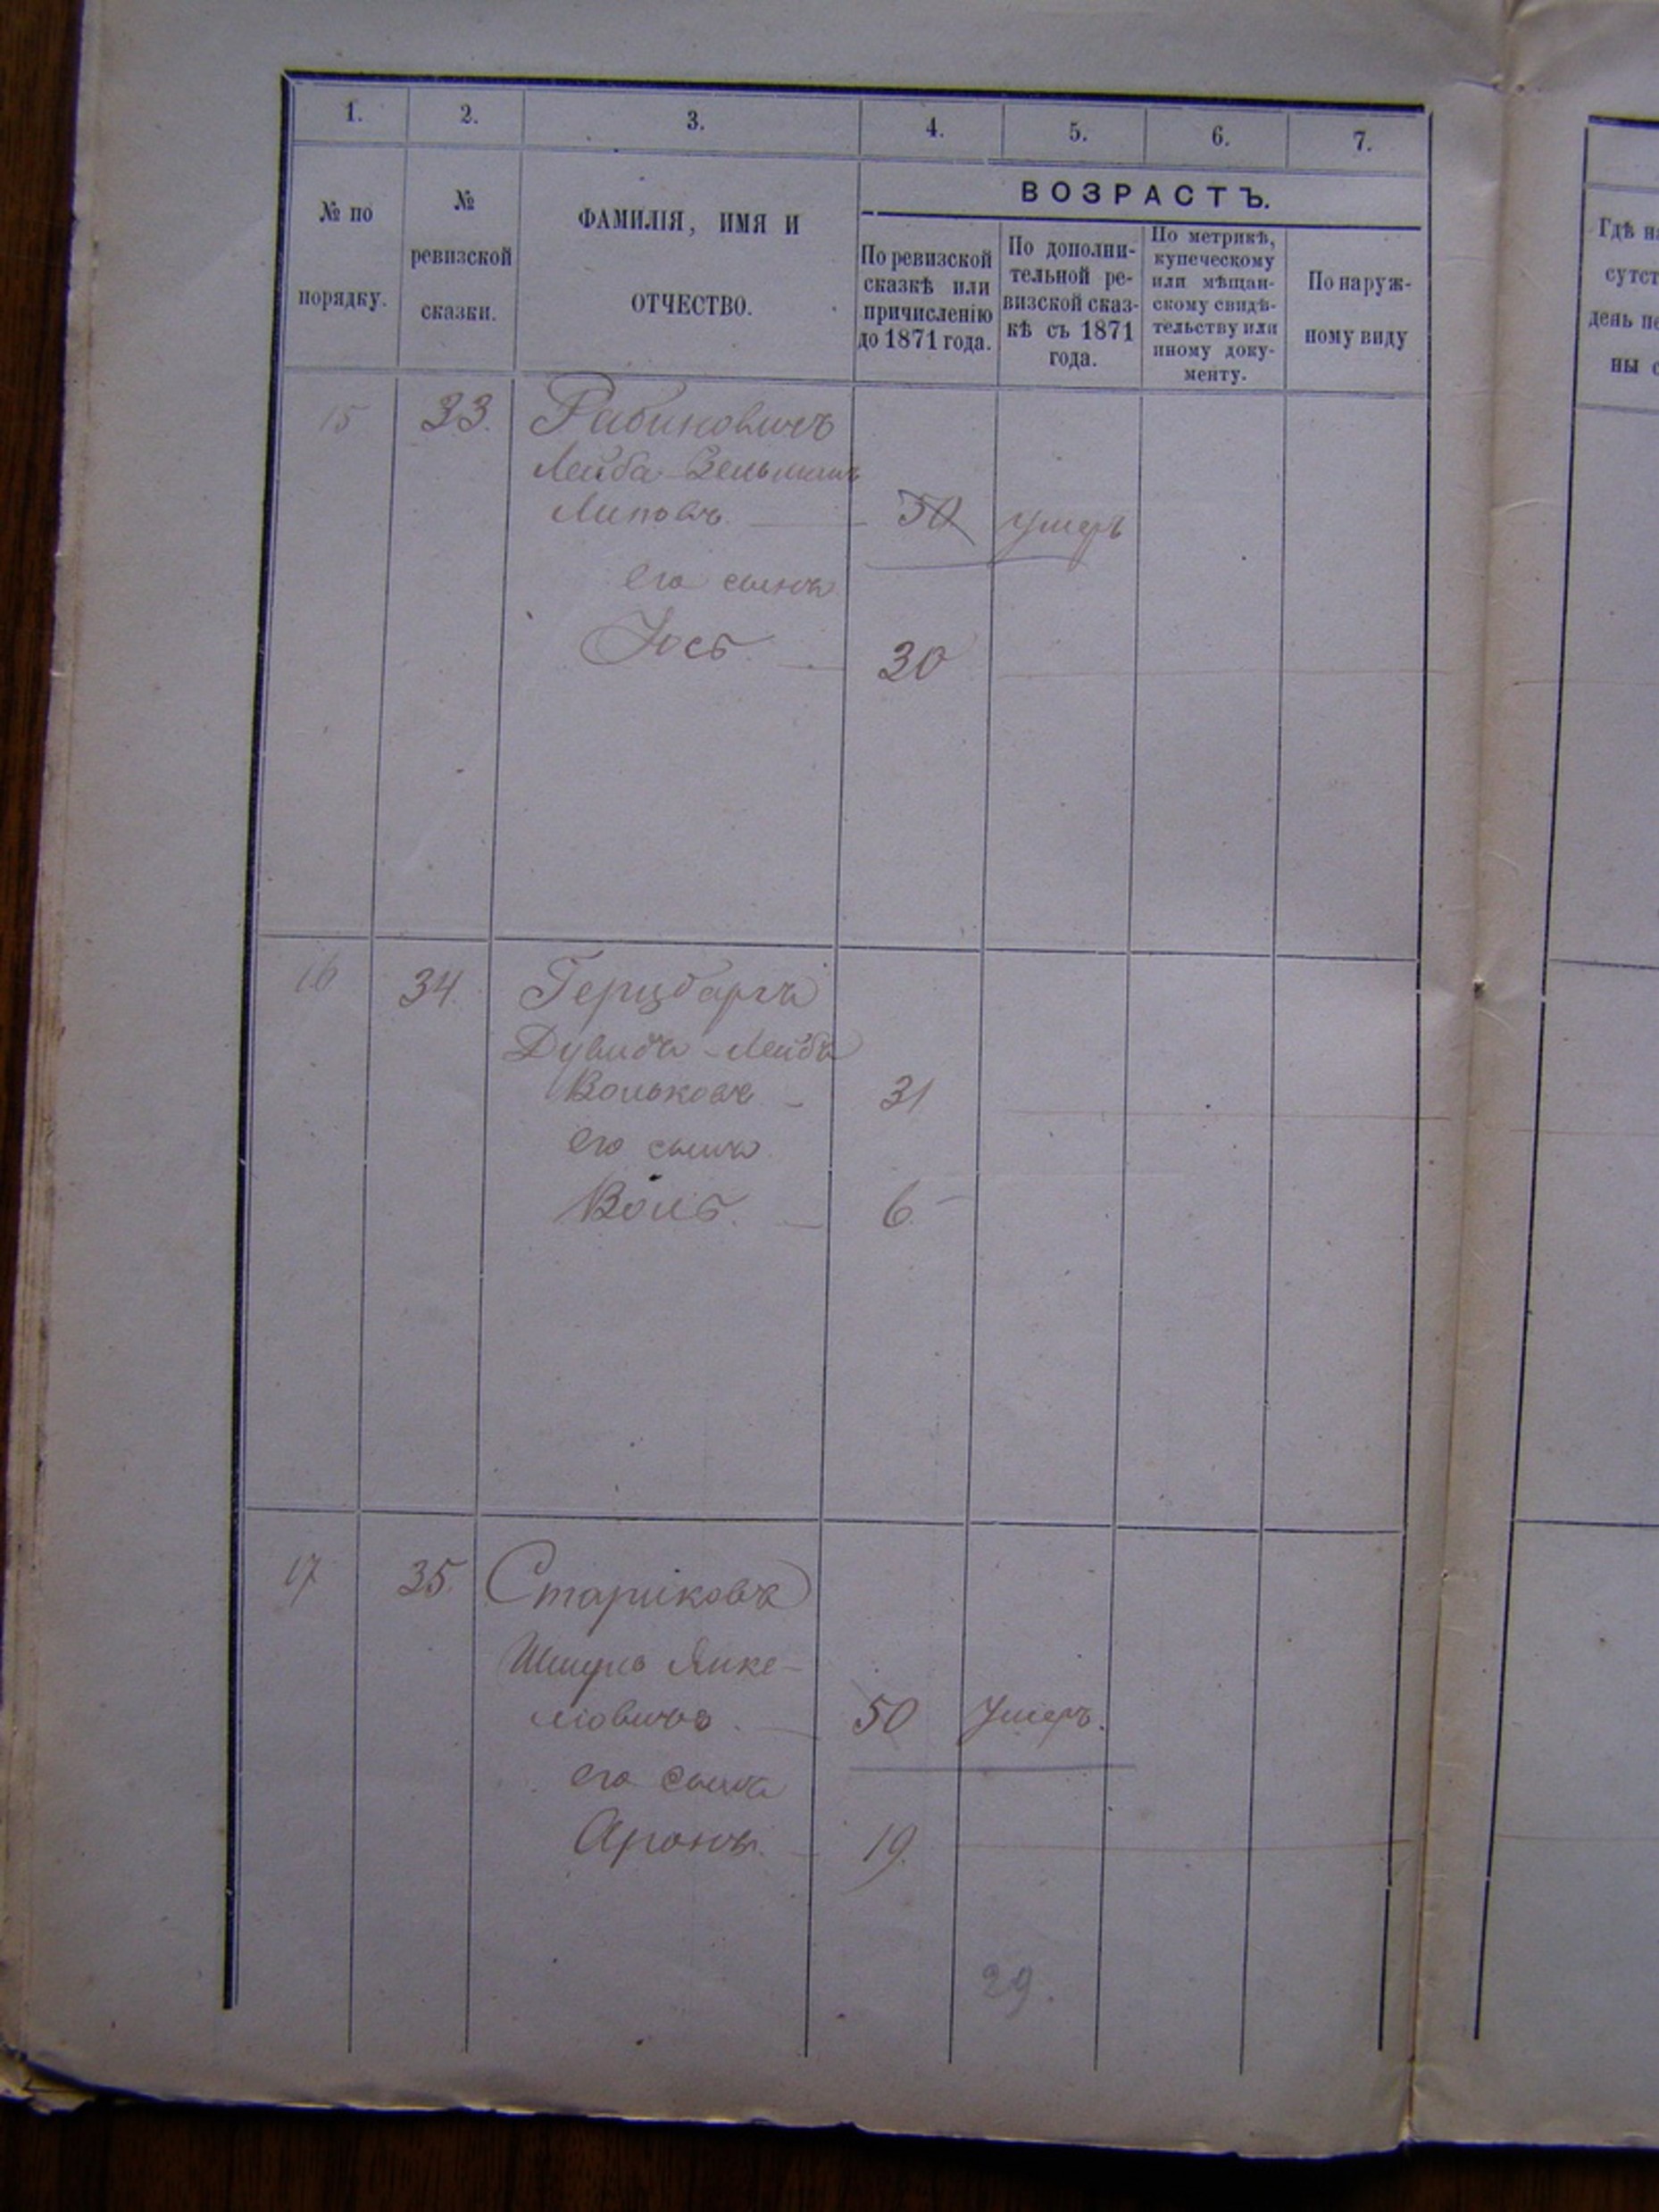 1. 2. 3. 4. 5. 6. 7.
№ по порядку.
№ ревизской сказки.
ФАМИЛІЯ, ИМЯ И ОТЧЕСТВО.
ВОЗРАСТЪ.
По ревизской
сказкѣ или
причисленію
до 1871 года.
По дополни-
тельной ре-
визской сказ-
кѣ съ 1871
года.
По метрикѣ,
купеческому
или мѣщан-
скому свидѣ-
тельству или
иному доку-
менту.
По наруж-
ному виду
15 33. Рабиновичъ
Лейба-Зельманъ
Липовъ 50 умеръ
его сынъ
Іось. 30
16 34. Герцбаргъ
Дувидъ-Лейба
Вольковъ 31
его сынъ
Воль. 6.
17 35. Стариковъ
Шмуль Янке-
ловичъ. 50 Умеръ.
его сынъ
Аронъ. 19.
29.
Гдѣ на
сутст
день пе
ны с